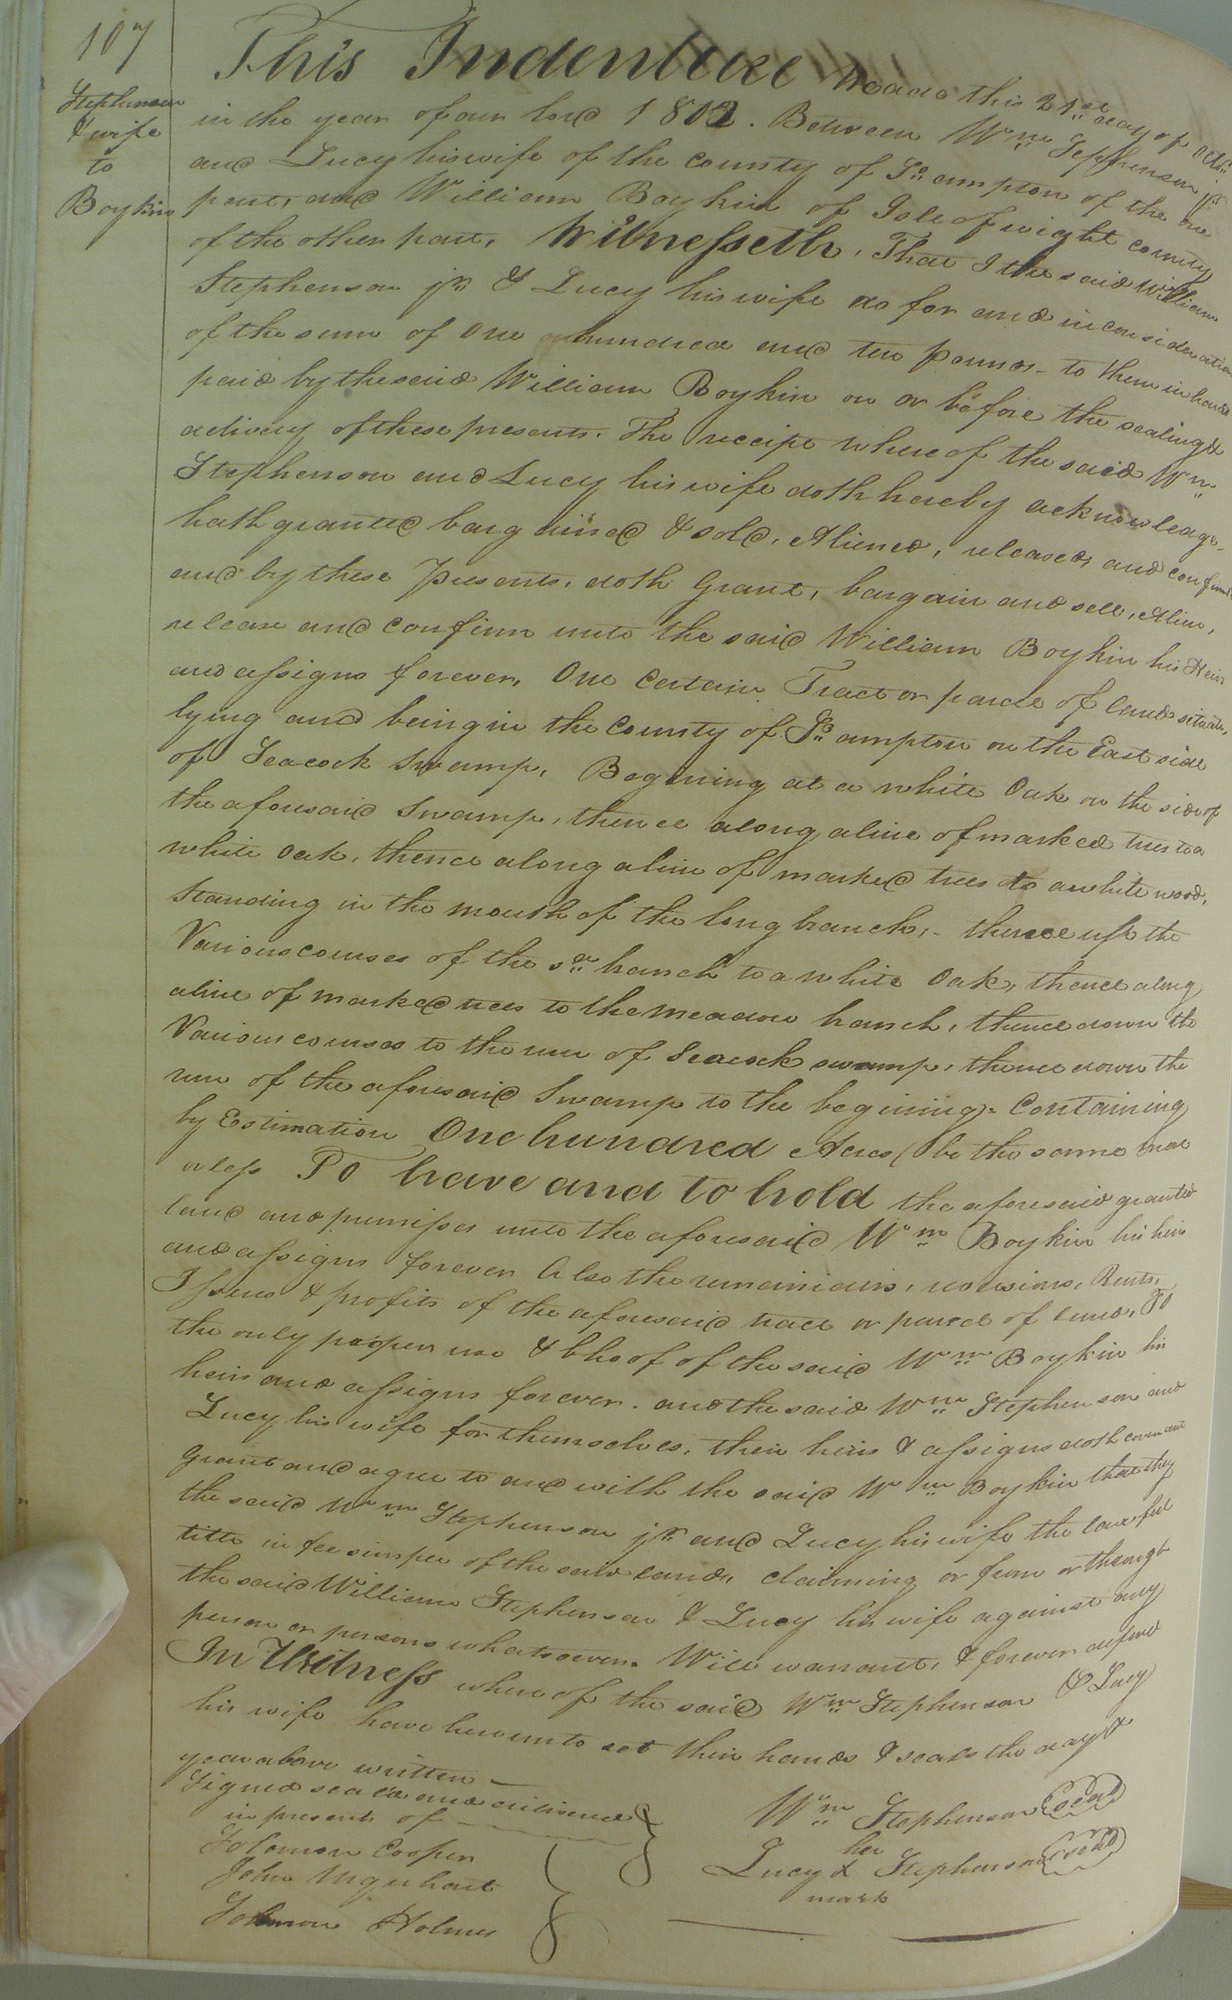 107
Stephenson
& wife
to
Boykin
This Indenture made this 21st day of Octr.
in the year of our lord 1802. Between Wm. Stephenson jr.
and Lucy his wife of the county of So.ampton of the one
part, and William Boykin of Isle of wight county
of the other part, Witnesseth, That I the said William
Stephenson jr. & Lucy his wife do for and in consideration
of the sum of One hundred and ten pounds - to them in hand
paid by the said William Boykin on or before the sealing &
delivery of these presents. The receipt whereof the said Wm.
Stephenson and Lucy his wife doth hereby acknowledge,
hath granted bargained & sold, Aliened, released, and confirmed
and by these presents, doth Grant, bargain and sell, Alien,
release and confirm unto the said William Boykin his Heirs
and assigns forever, One Certain Tract or parcel of land situate,
lying and being in the County of So.ampton on the East side
of Seacock Swamp, Begining at a white Oak on the side of
the aforesaid Swamp, thence along a line of marked trees to a
white Oak, thence along a line of marked trees to a white wood,
standing in the mouth of the long branch, - thence up the
Various courses of the sd. branch to a white Oak, thence along
a line of marked trees to the meadow branch, thence down the
Various courses to the run of Seacock swamp, thence down the
run of the aforesaid Swamp to the begining. Containing
by Estimation One hundred Acres (be the same more
or less To have and to hold the aforesaid granted
land and premises unto the aforesaid Wm. Boykin his heirs
and assigns forever Also the remainders, revisions, Rents,
Issues & profits of the aforesaid tract or parcel of land, To
the only proper use & bhoof of the said Wm. Boykin his
heirs and assigns forever. and the said Wm. Stephenson and
Lucy his wife for themselves, their heirs & assigns doth covenant
grant and agree to and with the said Wm. Boykin that they
the said Wm. Stephenson jr. and Lucy his wife the lawful
title in fee simple of the said land, claiming or from or through
the said William Stephenson & Lucy his wife against any
person or persons whatsoever. Will warrant, & forever defend
In Witness whereof the said Wm. Stephenson & Lucy
his wife have hereunto set their hands & seals the day &
year above written
Signed seald and delivered
in present of
Solomon Cooper
John Urquhart
Solomon Holmes
Wm. Stephenson (seal)
her
Lucy X Stephenson (seal)
mark